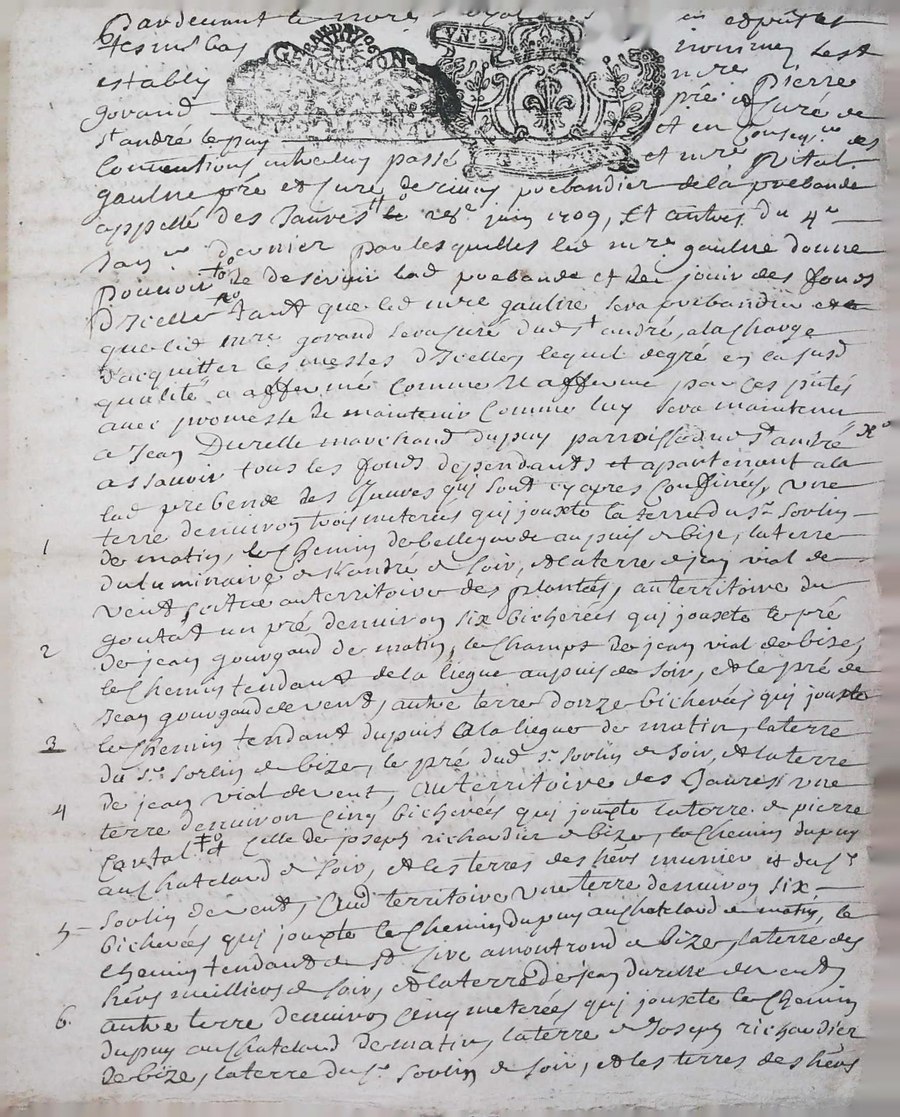 Pardevant le no.re Royal en et presents
tesm.s bas nommez s'est
estably m.re Pierre
govand p.bre et Curé de
s.t andré le puy et en Conseq.ce des
Conventions entre luy passé et m.re Vital
gaulne p.bre et Curé de Civen prebandier de la prebande
appellé des Jauves le 28.e juin 1709, Et autres du 4.e
Jan.er dernier par lesquelles led m.re gaulne donne
pouvoir de deservir lad prebande et de jouir des fonds
D'Icelle tant que led m.re gaulne sera prebandier et
que led m.re govand sera Curé dud s.t andré, a la Charge
d'acquitter les messes D'Icelle, lequel degré en la susd
qualité a affermé Comme Il afferme par ces p.ntes
avec promesse de maintenir Comme luy sera maintenu
a Jean Durelle marchand du puy parroisse dud s.t andré
assavoir tous les fonds dependants et apartenant a la
lad prebende des Jauves qui sont cy apres Confinés, Une
terre d'environ trois meterées qui jouxte la terre du s.r Sorlin
1 de matin, le Chemin de bellegarde au puis de bize, la terre
du luminaire de s.t andre de soir, et la terre de jean vial de
vent scitue au territoire des plantées, au territoire du
goutat un pré d'environ six bicherées qui jouxte le pré
2 de jean gourgaud de matin, le Champs de jean vial de bize,
le Chemin tendant de la liegue au puis de soir, et le pré de
Jean gourgaud de vent, autre terre d'onze bicherées qui jouxte
3 le Chemin tendant du puis a la liegue de matin, la terre
du s.r Sorlin de bize, le pré dud s.r Sorlin de soir, et la terre
de jean vial de vent, au territoire des Jauves une
4 terre d'environ Cinq bicherées qui jouxte la terre de pierre
Cantal et Celle de joseph richardier de bize, le Chemin du puy
au Chateland de soir, et les terres des hérs munier et du s.r
Sorlin de vent, aud territoire Une terre d'environ six
5 bicherées qui jouxte le Chemin du puy au Chateland de matin, le
Chemin tendant de s.t Cire a montrond de bize, la terre des
hérs meilliers de soir, et la terre de jean durelle de vent,
6 autre terre d'environ Cinq meterées qui jouxte le Chemin
du puy au Chateland de matin, la terre de Joseph richardier
de bize, la terre du s.r Sorlin de soir, et les terres des hérs